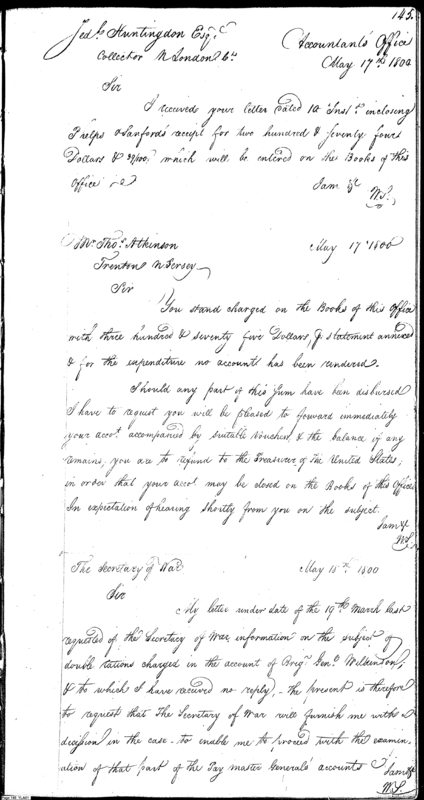 145.
Jed.h Huntingdon Esq.r
Collector N London Ct.
Accountant's Office
May 17th 1800
Sir
I received your letter dated 12 Inst.t inclosing
Phelps & Sanford's receipt for two hundred & seventy four
Dollars & 37/100, which will be entered on the Books of this
Office
I am &c
W.S.
Mr. Tho.s Atkinson
Trenton N Jersey
May 17th 1800
Sir
You stand charged on the Books of this Office
with three hundred & seventy five Dollars, p statement annexed
& for the expenditure no account has been rendered.
Should any part of this Sum have been disbursed
I have to request you will be pleased to foward immediately
your acco.t accompanied by suitable Vouchers, & the balance if any
remains, you are to refund to the Treasurer of the United States,
in order that your acco.t may be closed on the Books of this Office
In expectation of hearing shortly from you on the subject.
I am &c
W.S.
The Secretary of War
May 15th 1800
Sir
My letter under date of the 19th March last
requested of the Secretary of War information on the subject of
double rations charged in the account of Brig.r Gen.l Wilkinson,
& to which I have received no reply, - the present is therefore
to request that The Secretary of War will furnish me with a
decission in the case - to enable me to proceed with the examin-
ation of that part of the Pay master Generals' accounts
I am &c
W.S.